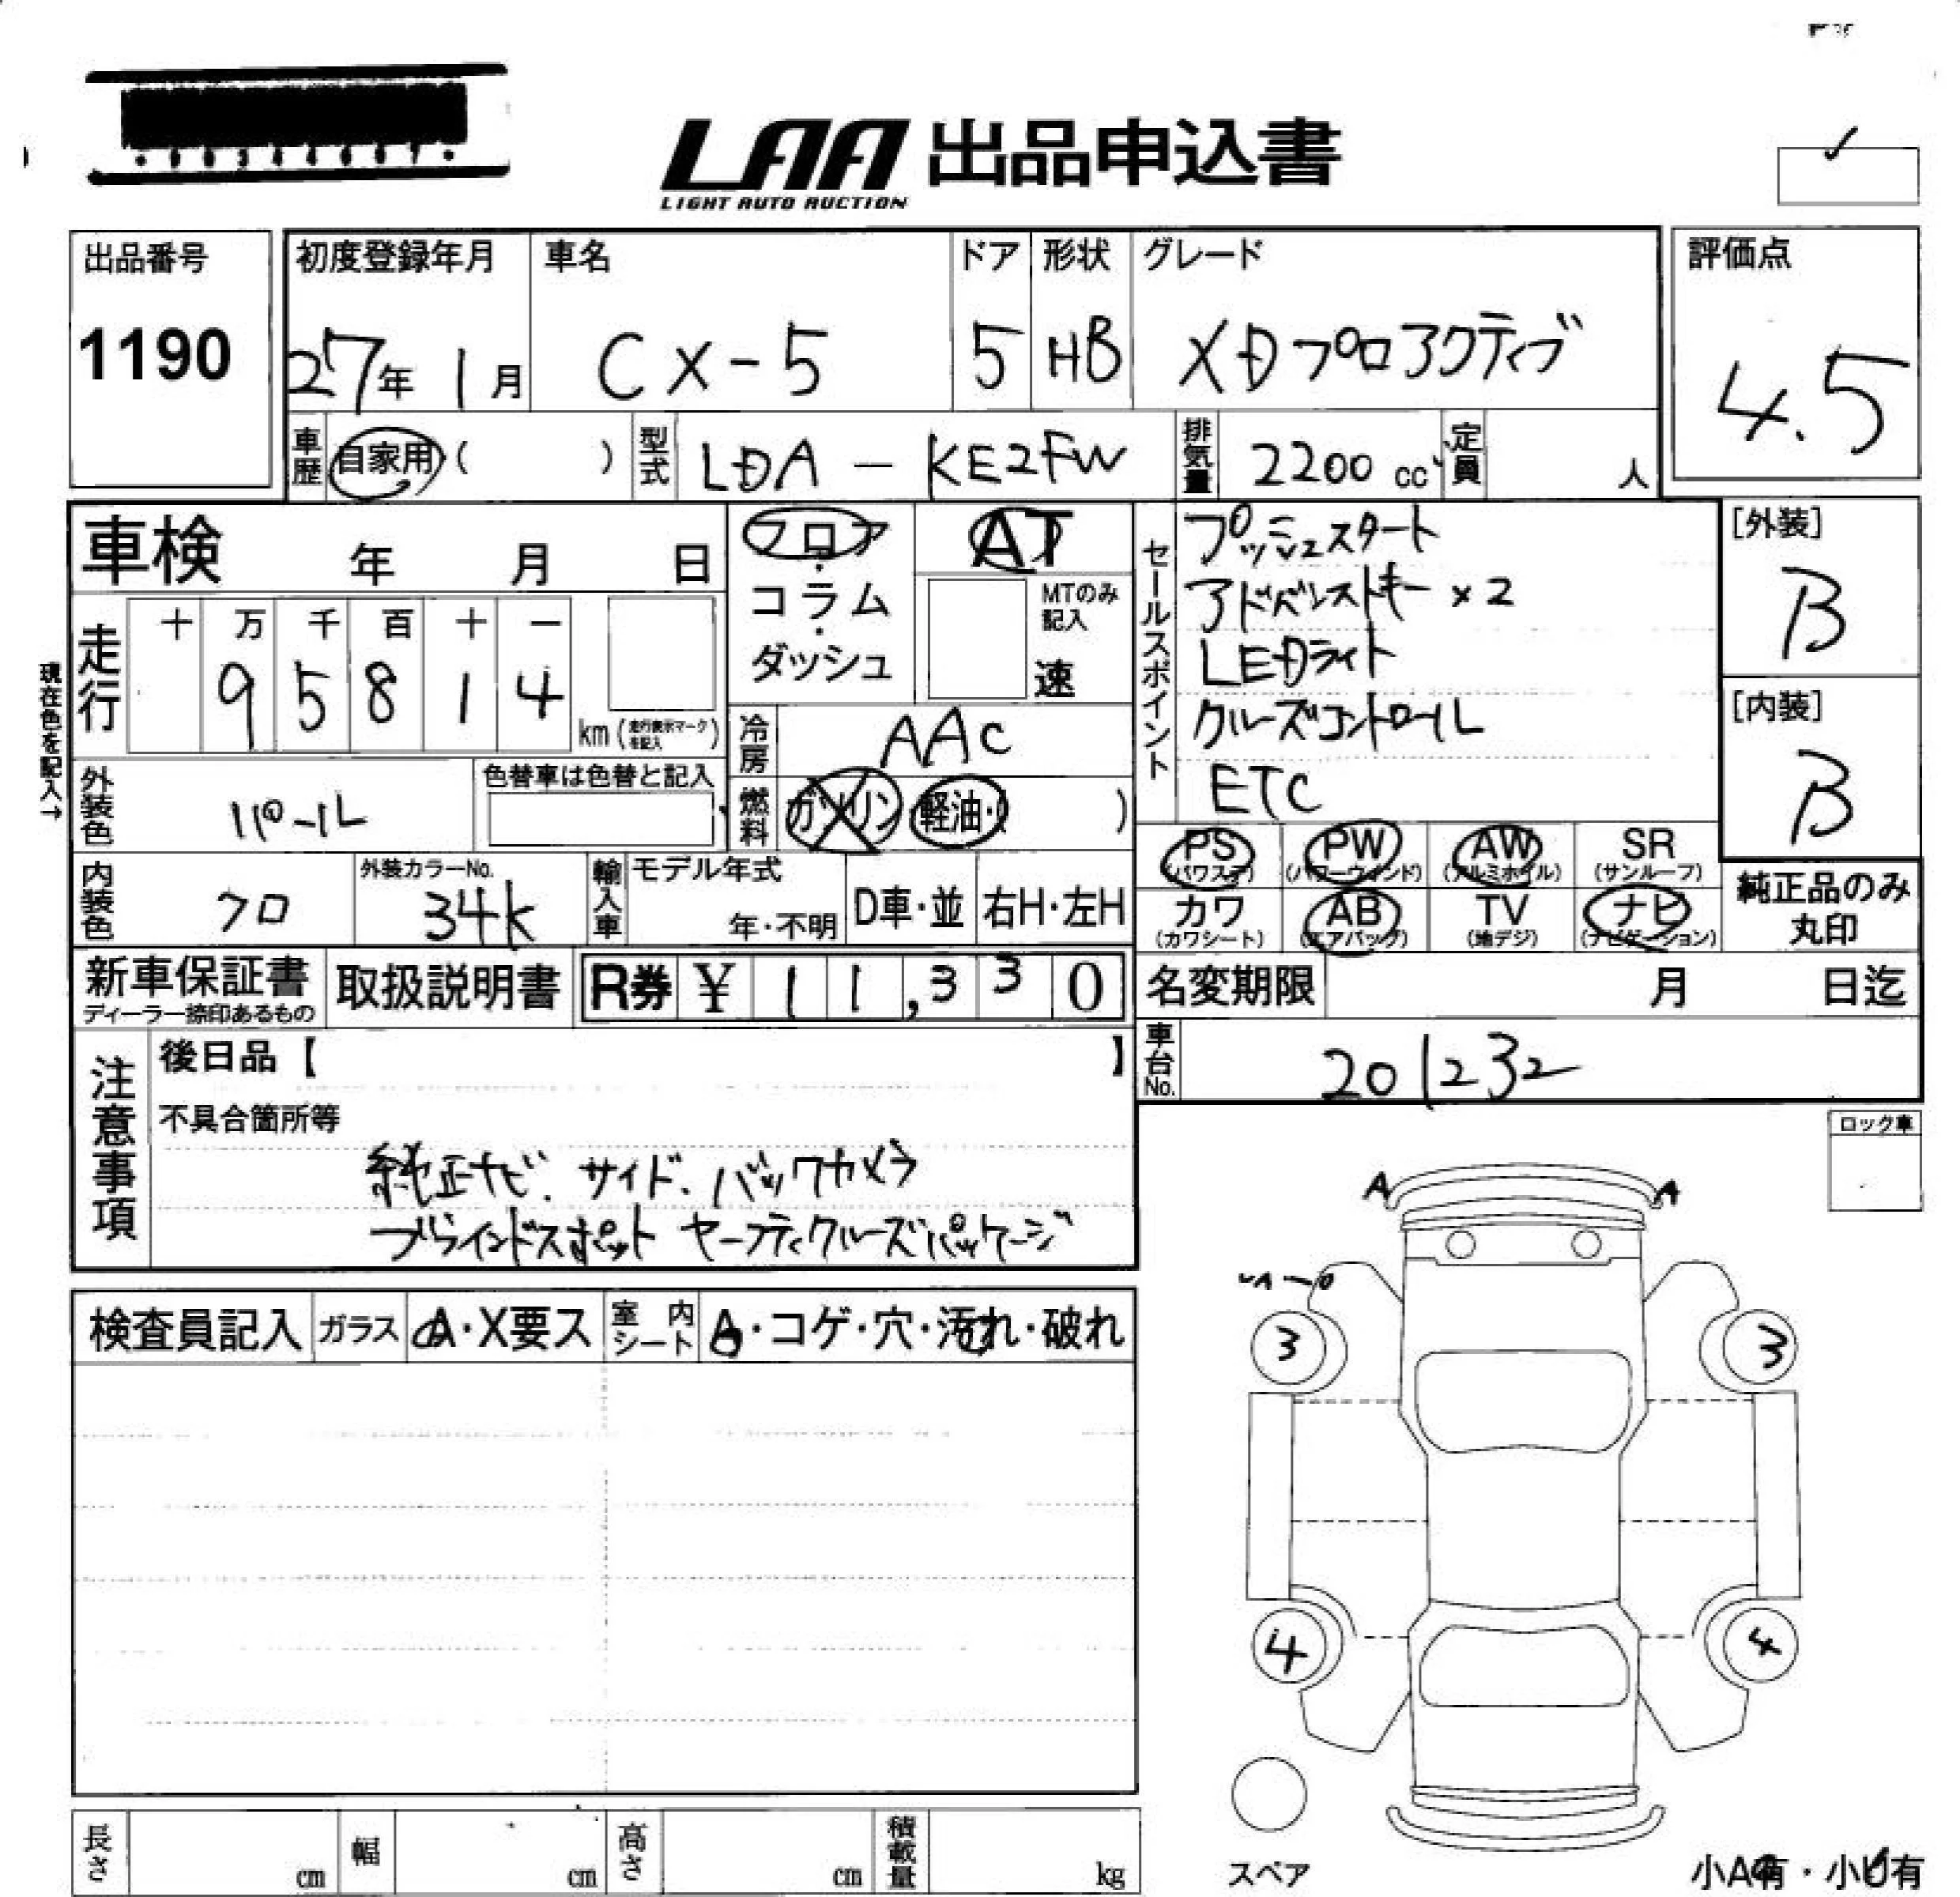 LAA 出品申込書
LIGHT AUTO AUCTION
出品番号
1190
初度登録年月
27年 1月
車名
CX-5
ドア
5
形状
HB
グレード
XDプロアクティブ
評価点
4.5
車歴
自家用( )
型式
LDA - KE2FW
排気量
2200 cc
定員
人
現在色を記入→
車検 年 月 日
走行
十 万 千 百 十 一
9 5 8 1 4
km (走行表示マークを記入)
フロア・
コラム・
ダッシュ
AT
MTのみ記入
速
冷房
AAC
燃料
ガソリン 軽油・( )
外装色
パール
色替車は色替と記入
内装色
クロ
外装カラーNo.
34K
輸入車
モデル年式
年・不明
D車・並
右H・左H
セールスポイント
プッシュスタート
アドバンストキー×2
LEDライト
クルーズコントロール
ETC
[外装]
B
[内装]
B
PS (パワステ)
PW (パワーウィンド)
AW (アルミホイル)
SR (サンルーフ)
カワ (カワシート)
AB (エアバッグ)
TV (地デジ)
ナビ (ナビゲーション)
純正品のみ
丸印
新車保証書
ディーラー捺印あるもの
取扱説明書
R券 ¥ 11,330
名変期限 月 日迄
車台No.
201232
注意事項
後日品【 】
不具合箇所等
純正ナビ、サイド、バックカメラ
ブラインドスポット セーフティクルーズパッケージ
ロック車
A A
3 3
4 4
検査員記入
ガラス
A・X要ス
室内シート
A・コゲ・穴・汚れ・破れ
長さ
cm
幅
cm
高さ
cm
積載量
kg
スペア
小A有・小U有